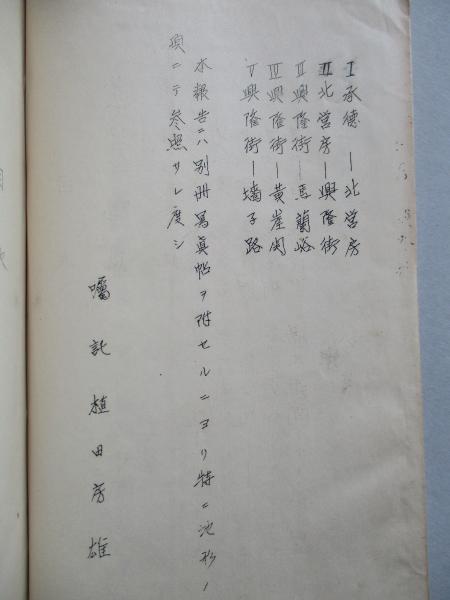 I 承德 — 北営房
II 北営房 — 興隆街
III 興隆街 — 馬蘭峪
IV 興隆街 — 黄崖関
V 興隆街 — 墻子路
本報告ニハ別冊写真帖ヲ附セルニヨリ特ニ地形ノ
項ニテ参照サレ度シ
嘱託 植田房雄